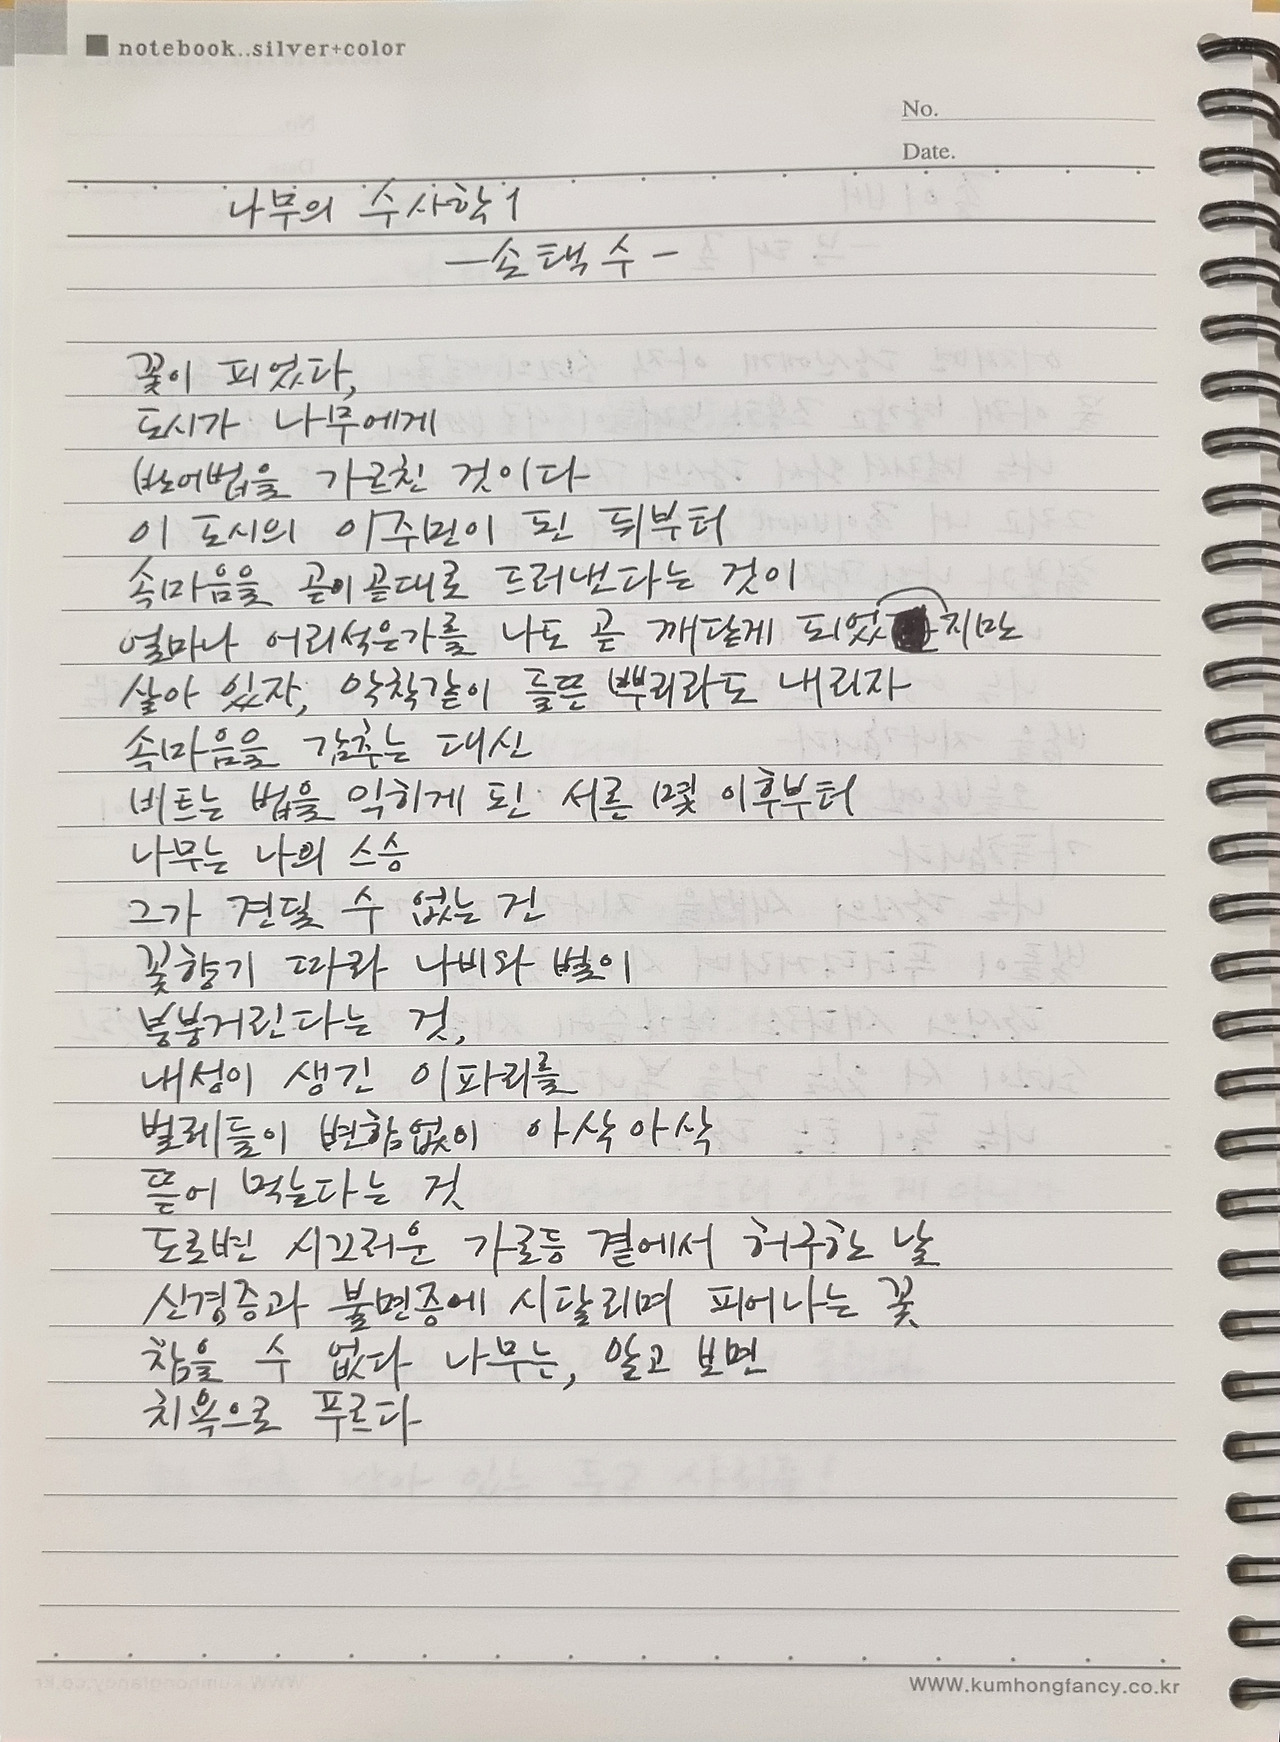 notebook..silver+color
No.
Date.
나무의 수사학1
—손택수—
꽃이 피었다,
도시가 나무에게
반어법을 가르친 것이다
이 도시의 이주민이 된 뒤부터
속마음을 곧이곧대로 드러낸다는 것이
얼마나 어리석은가를 나도 곧 깨닫게 되었지만
살아 있자, 악착같이 들뜬 뿌리라도 내리자
속마음을 감추는 대신
비트는 법을 익히게 된 서른 몇 이후부터
나무는 나의 스승
그가 견딜 수 없는 건
꽃향기 따라 나비와 벌이
붕붕거린다는 것,
내성이 생긴 이파리를
벌레들이 변함없이 아삭아삭
뜯어 먹는다는 것
도로변 시끄러운 가로등 곁에서 허구한 날
신경증과 불면증에 시달리며 피어나는 꽃
참을 수 없다 나무는, 알고 보면
치욕으로 푸르다
WWW.kumhongfancy.co.kr